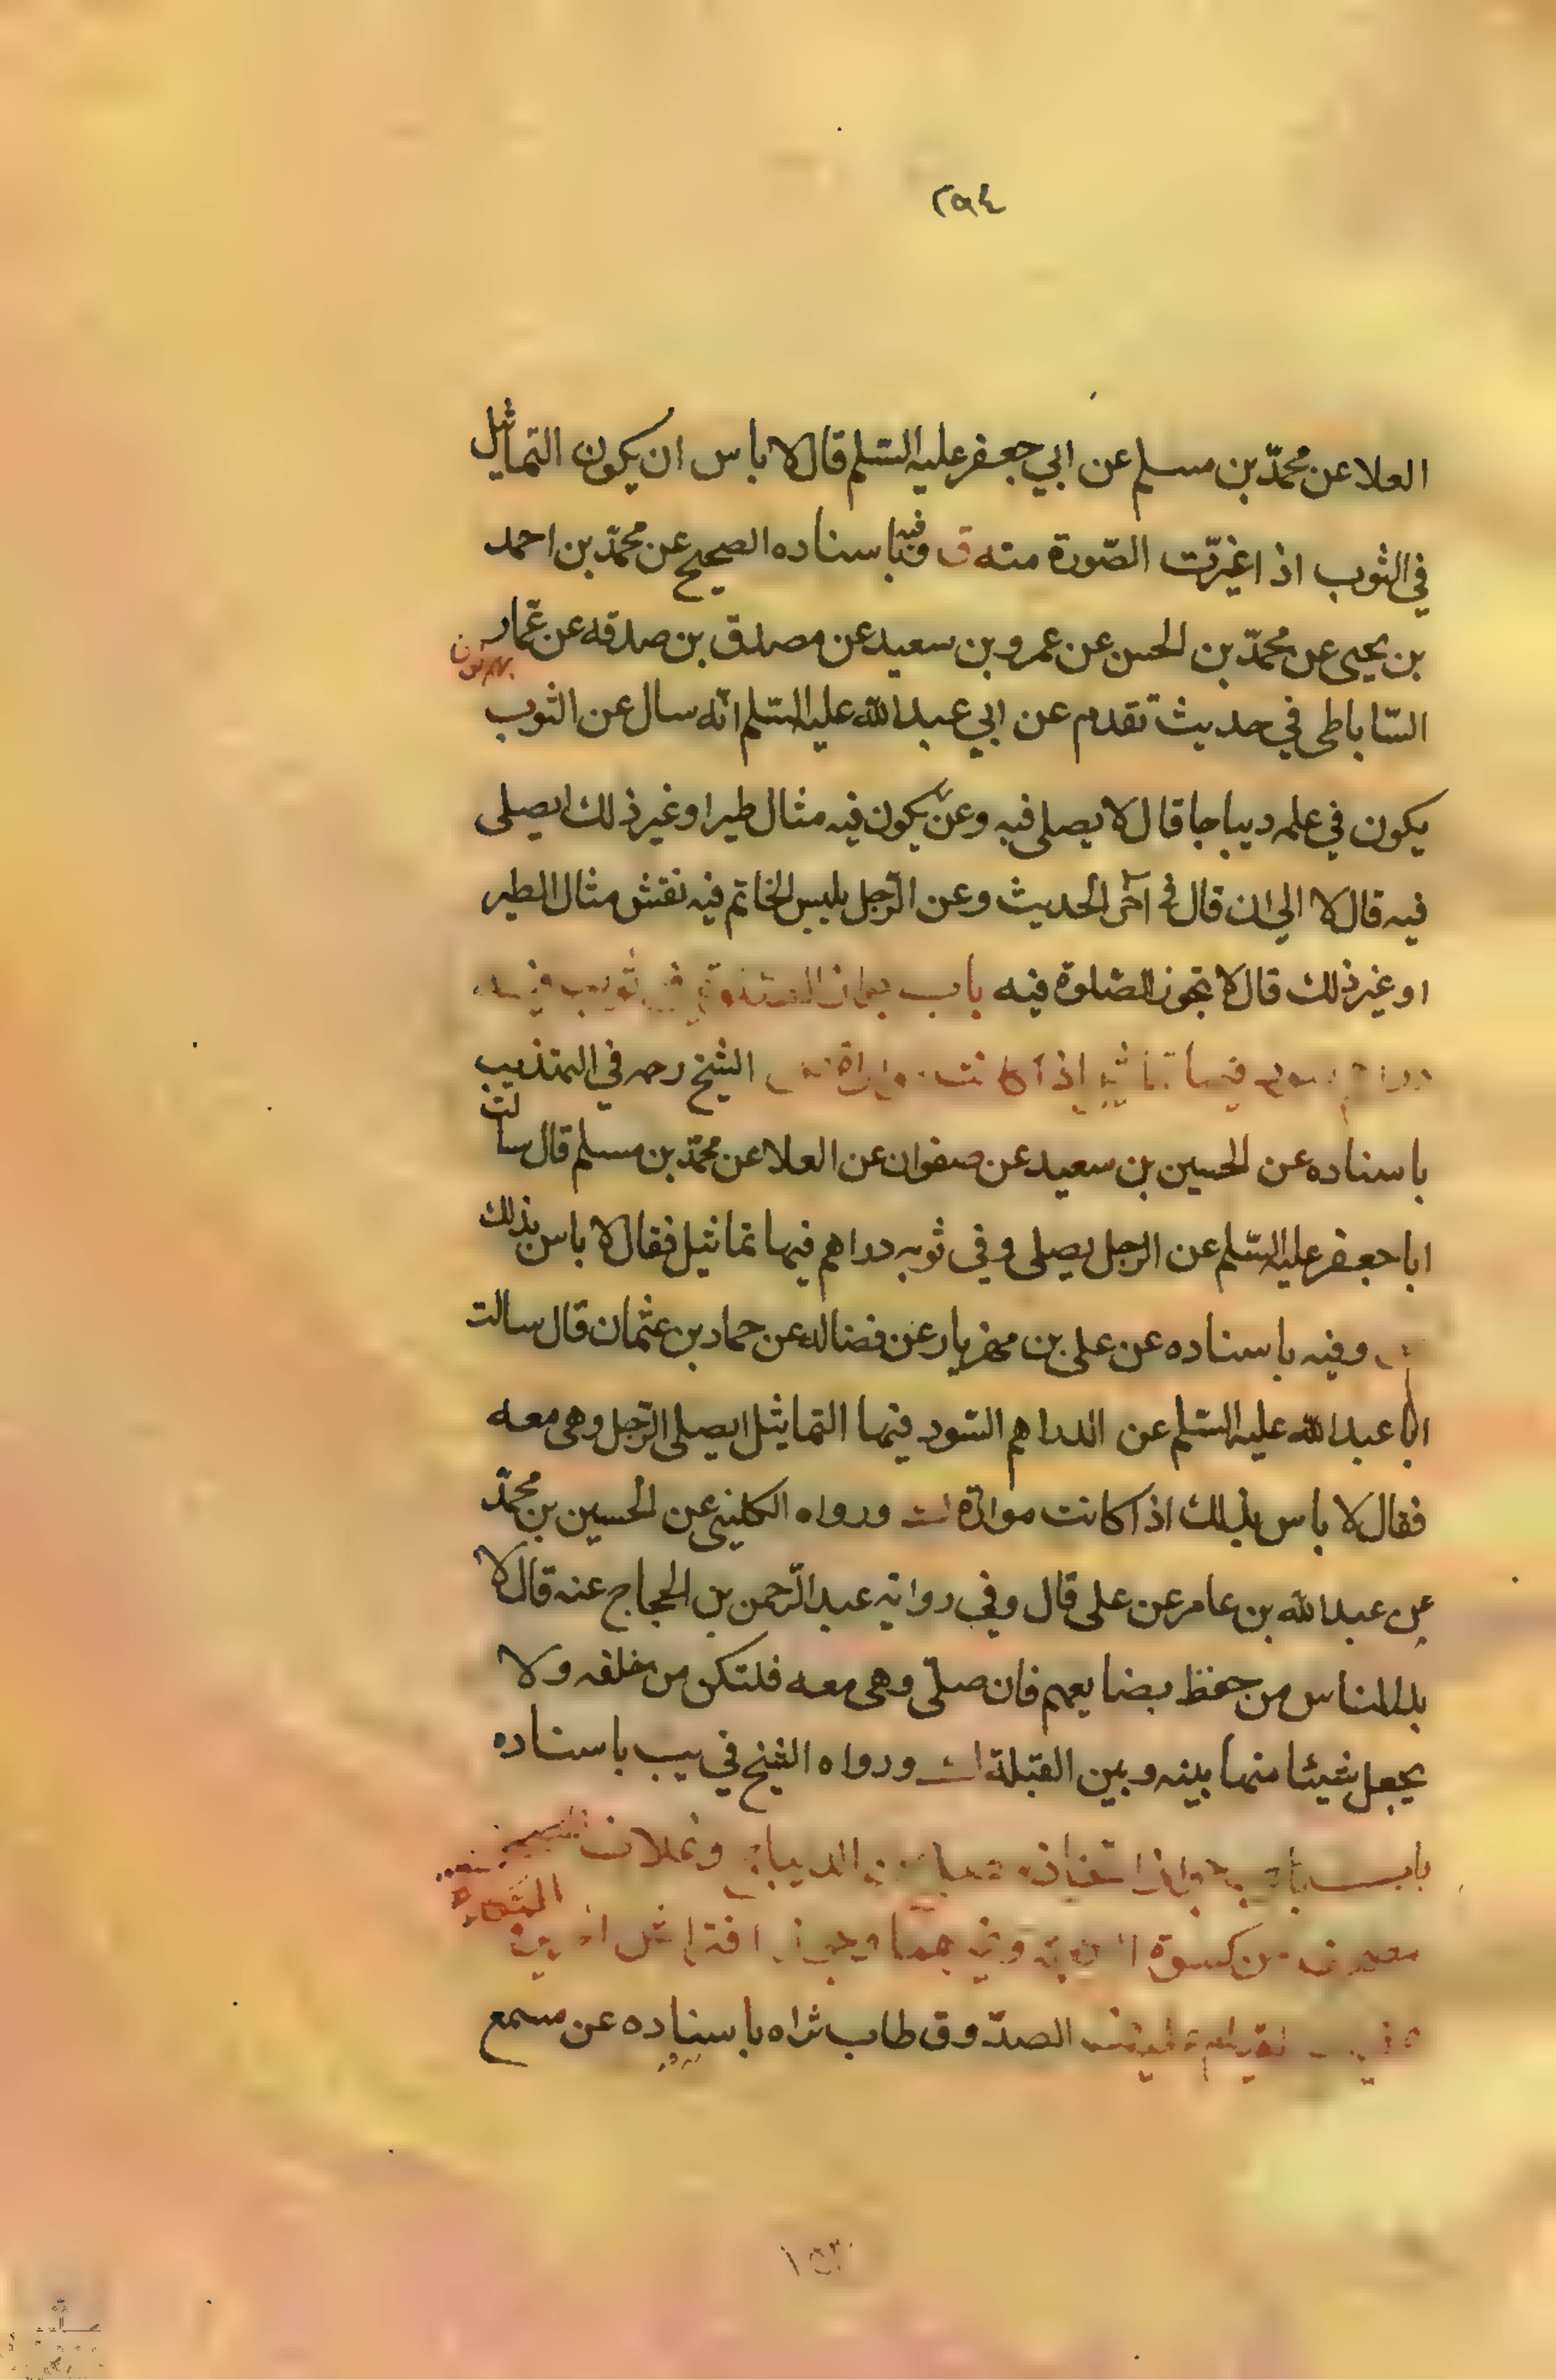 ٢٩٤
العلا عن محمّد بن مسلم عن ابي جعفر عليه السّلم قال لا باس ان يكون التماثيل
في الثوب اذا غيرّت الصّورة منه ق وفيه باسناده الصحيح عن محمّد بن احمد
بن يحيى عن محمّد بن الحسن عن عمرو بن سعيد عن مصدق بن صدقه عن عمّار
السّاباطى في حديث تقدم عن ابي عبد الله عليه السّلم انّه سال عن الثوب
يكون في علمه ديباجا قال لا يصلى فيه وعن يكون فيه مثال طير او غير ذلك ايصلى
فيه قال لا الى ان قال في آخر الحديث وعن الرّجل يلبس الخاتم فيه نقش مثال الطير
او غير ذلك قال لا تجوز الصّلوة فيه باب في ثوب فيه
فيها تماثيل إذا كانت الشيخ رحمه في التهذيب
باسناده عن الحسين بن سعيد عن صفوان عن العلا عن محمّد بن مسلم قال سالت
ابا جعفر عليه السّلم عن الرجل يصلى وفي ثوبه دراهم فيها تماثيل فقال لا باس بذلك
وفيه باسناده عن على بن مهزيار عن فضاله عن حماد بن عثمان قال سالت
ابا عبد الله عليه السّلم عن الدراهم السّود فيها التماثيل ايصلى الرّجل وهى معه
فقال لا باس بذلك اذا كانت مواراة ورواه الكلينى عن الحسين بن محمّد
عن عبد الله بن عامر عن على قال وفي رواية عبد الرّحمن بن الحجاج عنه قال لا
بد للناس من حفظ بضايعهم فان صلّى وهى معه فلتكن من خلفه ولا
يجعل شيئا منها بينه وبين القبلة ورواه الشيخ في يب باسناده
باب الديباج
من كسوة افتراش
الصدّوق طاب ثراه باسناده عن مسمع